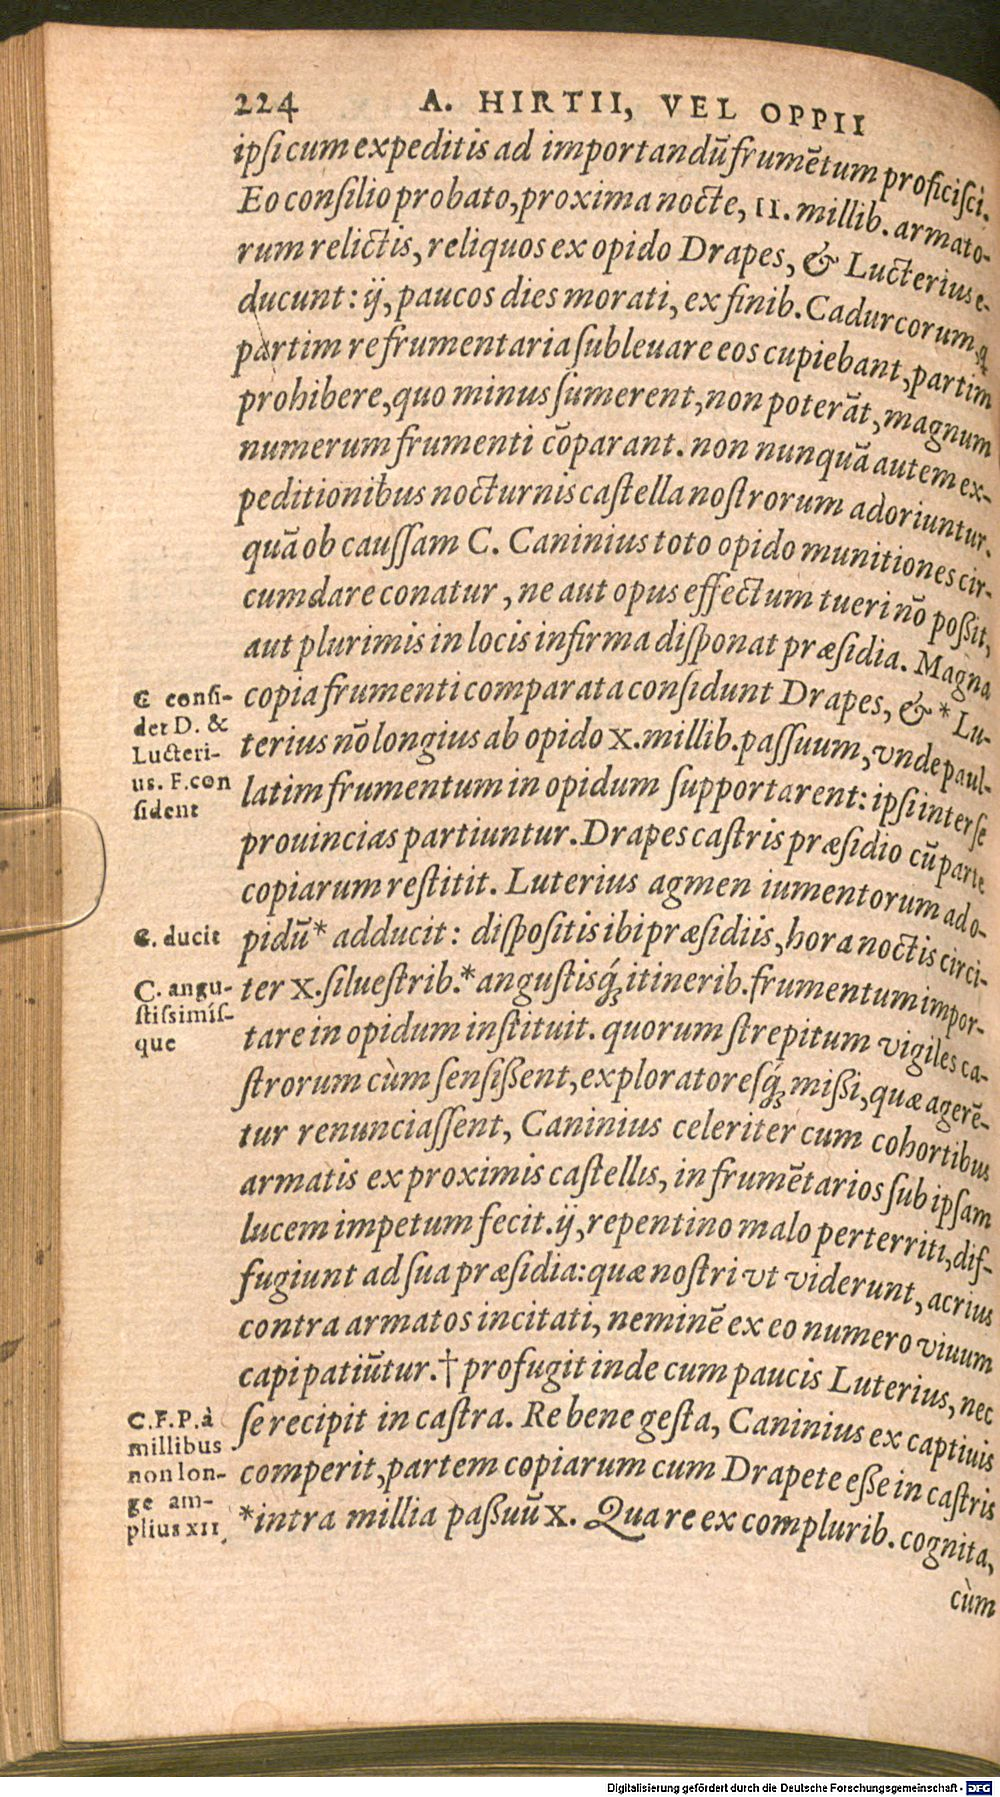 224 A. HIRTII, VEL OPPII
ipsi cum expeditis ad importandū frumētum proficisci.
Eo consilio probato, proxima nocte, II. millib. armato-
rum relictis, reliquos ex opido Drapes, & Lucterius e-
ducunt: ij, paucos dies morati, ex finib. Cadurcorum, q
partim re frumentaria subleuare eos cupiebant, partim
prohibere, quo minus sumerent, non poterāt, magnum
numerum frumenti cōparant. non nunquā autem ex-
peditionibus nocturnis castella nostrorum adoriuntur.
quā ob caussam C. Caninius toto opido munitiones cir-
cumdare conatur, ne aut opus effectum tueri nō possit,
aut plurimis in locis infirma disponat præsidia. Magna
copia frumenti comparata considunt Drapes, & * Lu-
terius nō longius ab opido X. millib. passuum, vnde paul-
latim frumentum in opidum supportarent: ipsi inter se
prouincias partiuntur. Drapes castris præsidio cū parte
copiarum restitit. Luterius agmen iumentorum ad o-
pidū* adducit: dispositis ibi præsidiis, hora noctis circi-
ter X. siluestrib.* angustisq́; itinerib. frumentum impor-
tare in opidum instituit. quorum strepitum vigiles ca-
strorum cùm sensissent, exploratoresq́; missi, quæ agerē-
tur renunciassent, Caninius celeriter cum cohortibus
armatis ex proximis castellis, in frumētarios sub ipsam
lucem impetum fecit. ij, repentino malo perterriti, dif-
fugiunt ad sua præsidia: quæ nostri vt viderunt, acrius
contra armatos incitati, neminē ex eo numero viuum
capi patiūtur.† profugit inde cum paucis Luterius, nec
se recipit in castra. Re bene gesta, Caninius ex captiuis
comperit, partem copiarum cum Drapete esse in castris
*intra millia passuū X. Quare ex complurib. cognita,
cùm
C consi-
det D. &
Lucteri-
us. F. con
sident
C. ducit
C. angu-
stissimís-
que
C.F.P.à
millibus
non lon-
ge am-
plius XII.
Digitalisierung gefördert durch die Deutsche Forschungsgemeinschaft - DFG